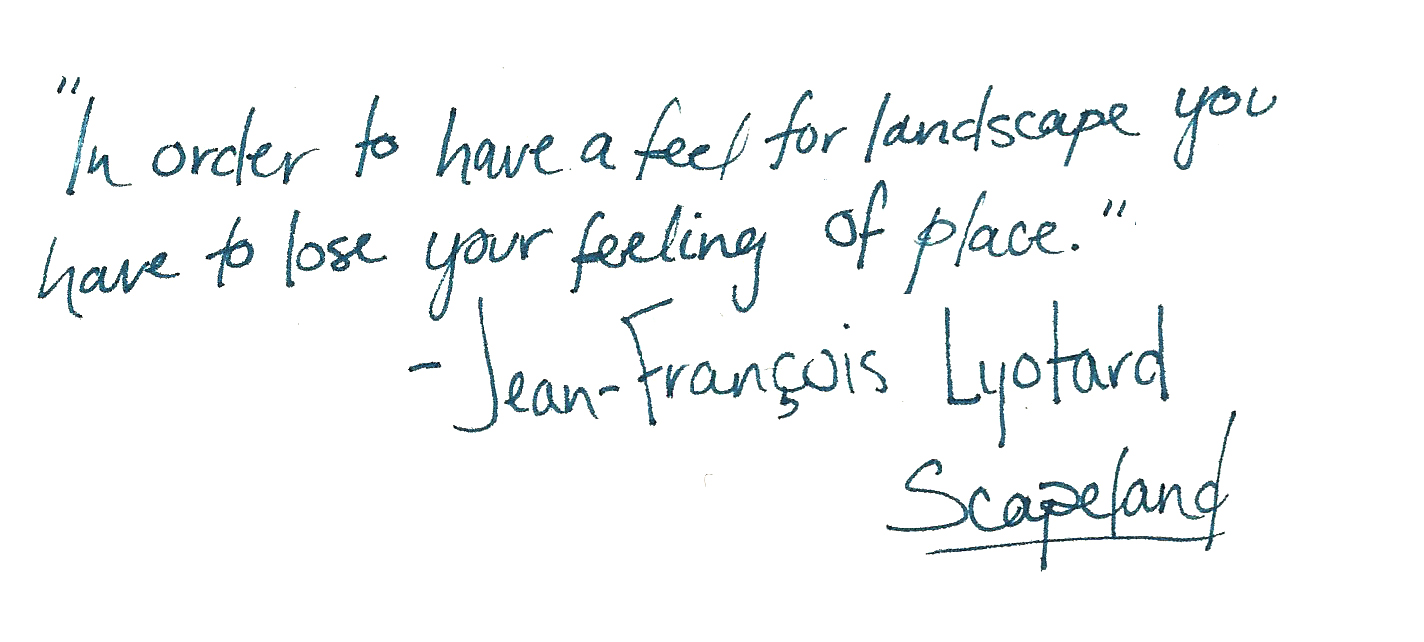 "In order to have a feel for landscape you
have to lose your feeling of place."
-Jean-François Lyotard
Scapeland